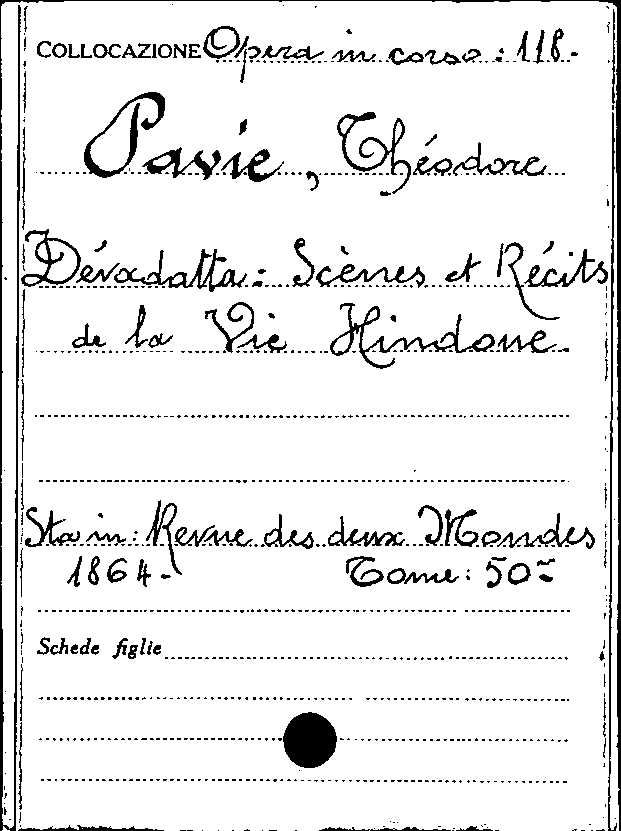 COLLOCAZIONE Opera in corso: 118.
Pavie, Théodore
Dévadatta: Scènes et Récits
de la Vie Hindoue.
Sta in: Revue des deux Mondes
1864. Tome: 50º
Schede figlie